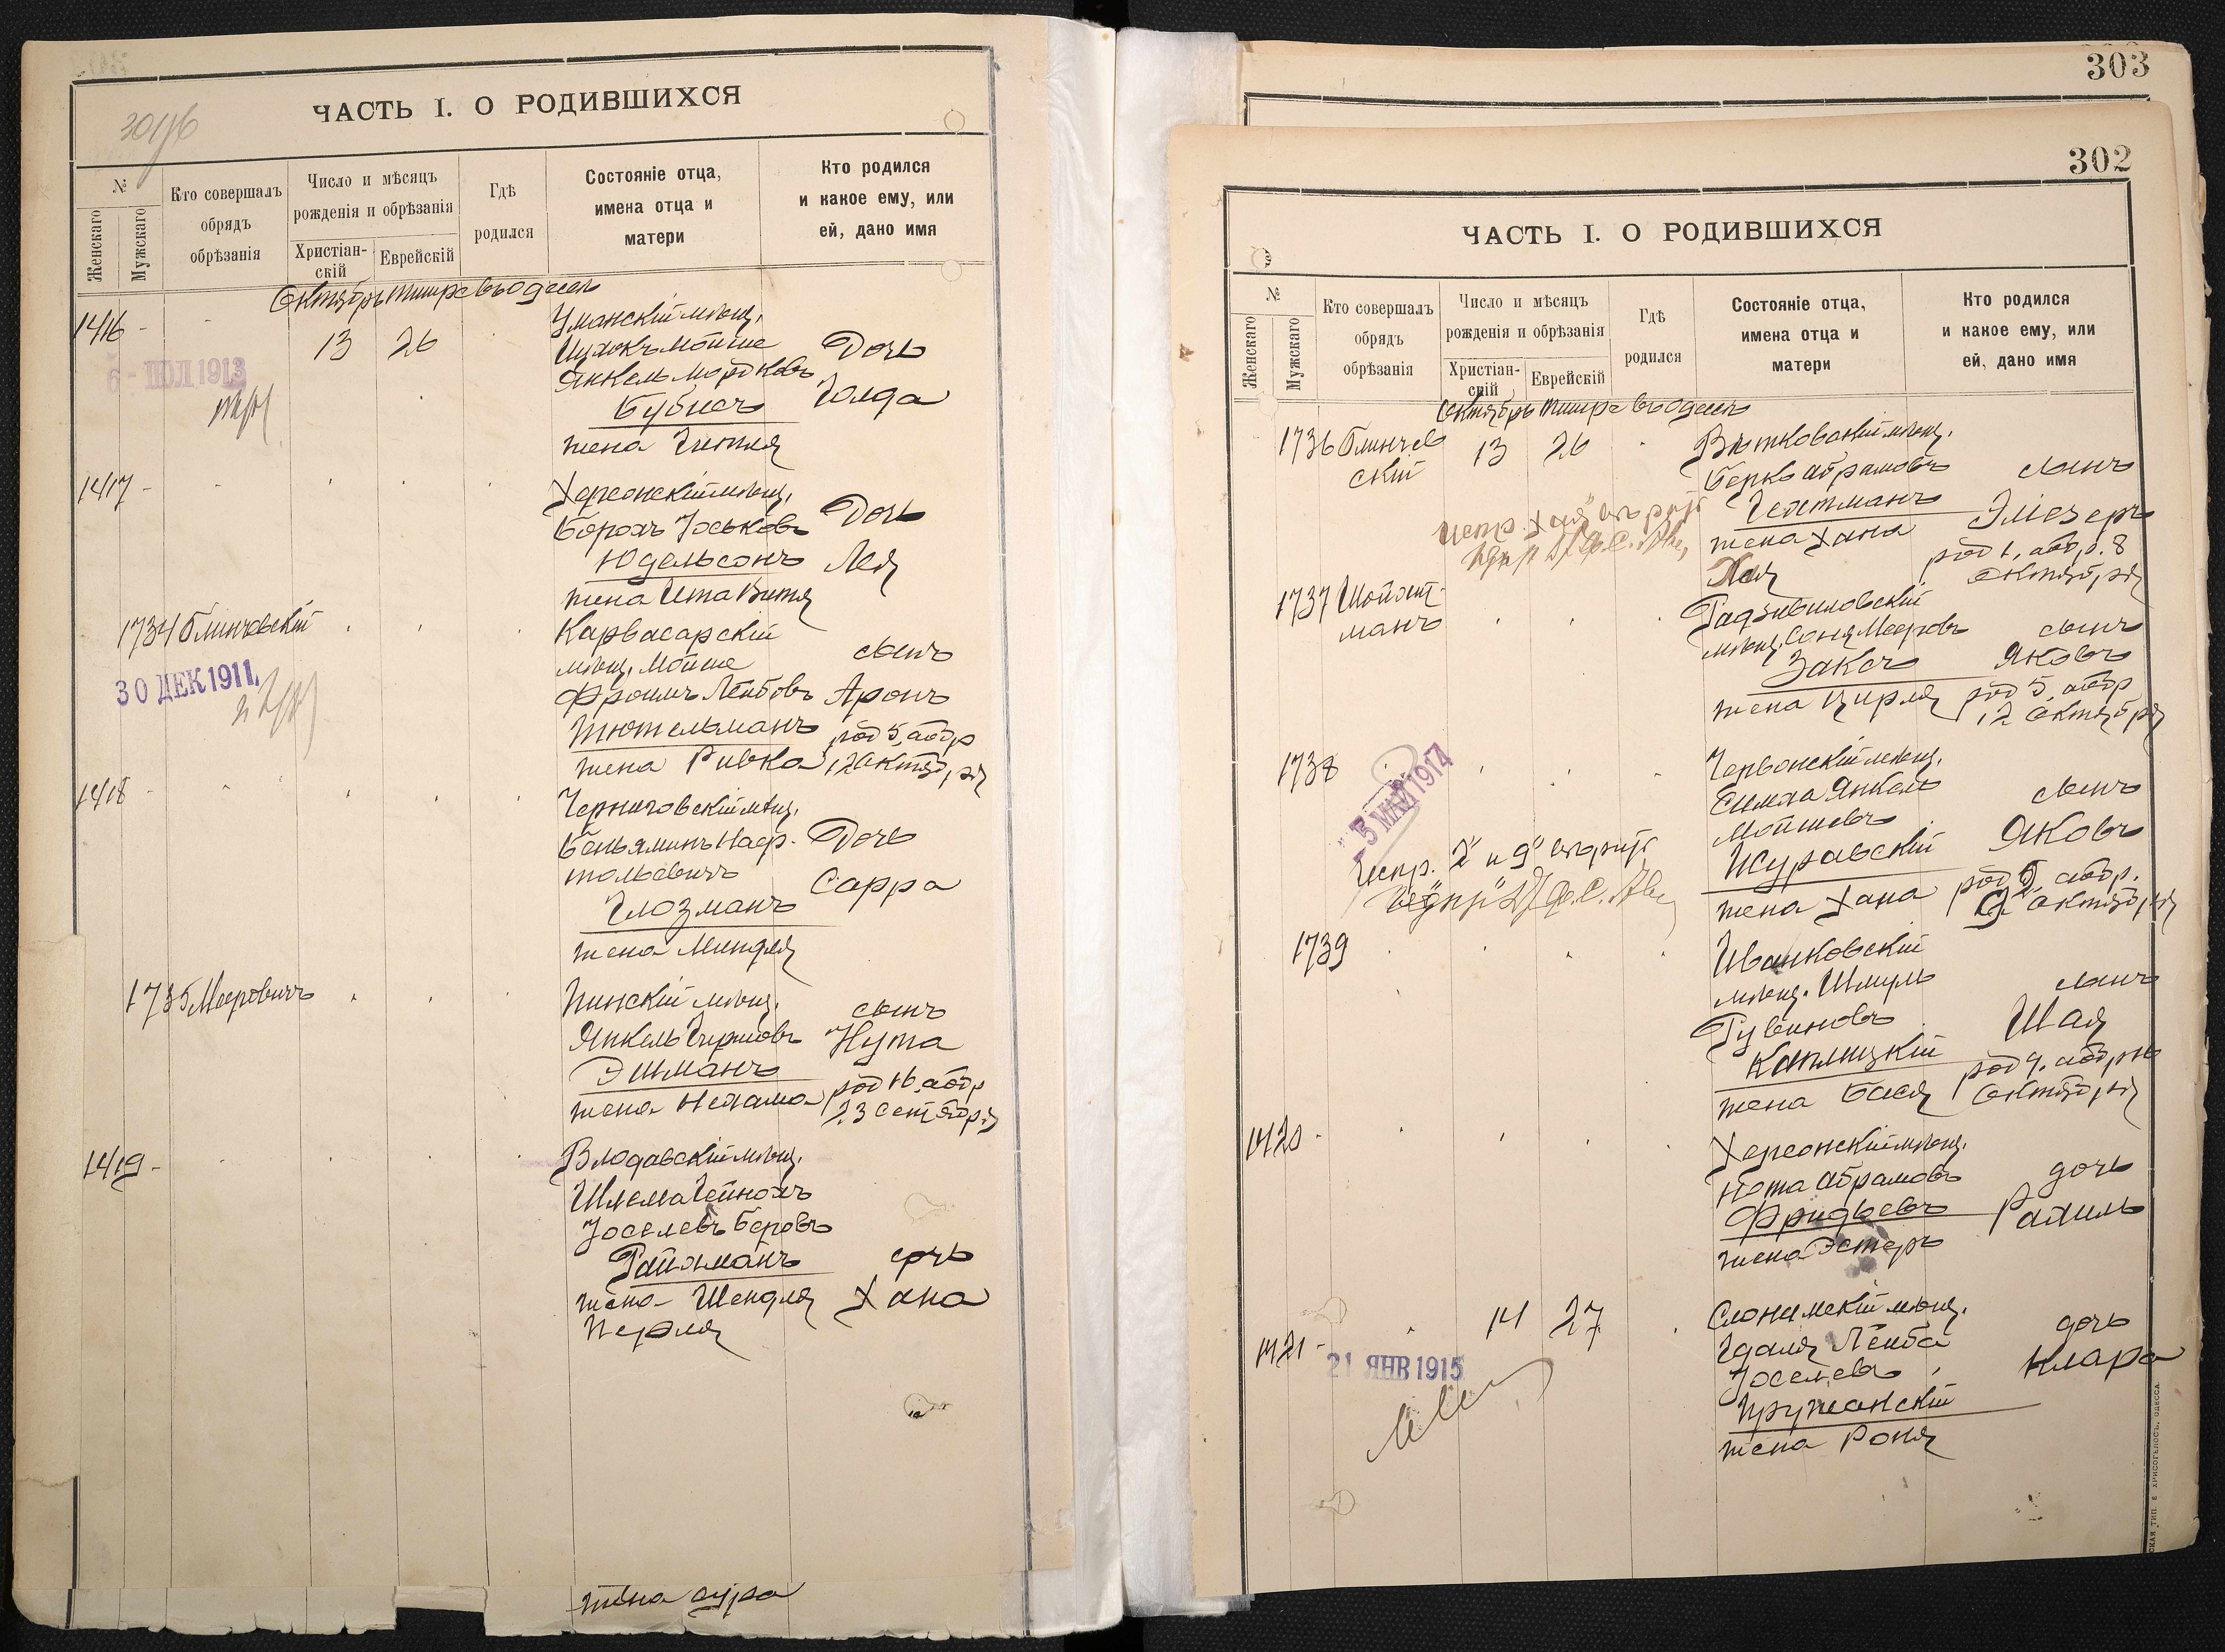 ЧАСТЬ I. О РОДИВШИХСЯ
№
Женскаго
Мужскаго
Кто совершалъ
обрядъ
обрѣзанія
Число и мѣсяцъ
рожденія и обрѣзанія
Христіан-
скій
Еврейскій
Гдѣ
родился
Состояніе отца,
имена отца и
матери
Кто родился
и какое ему, или
ей, дано имя
Октябрь Тишре въ Одессѣ
1416
13 26
Уманскій мѣщ.
Ицхокъ Мойше
Янкель Мордковъ
Бубисъ
жена Гитля
Дочь
Голда
6 - ІЮЛ 1913
1417
Херсонскій мѣщ.
Борохъ Іоськовъ
Юдельсонъ
жена Ита Витя
Дочь
Лея
1734 Блинчевскій
30 ДЕК 1911
Карвасарскій
мѣщ. Мойше
Фроимъ Лейбовъ
Тютельманъ
жена Ривка
сынъ
Аронъ
род 5, абр
12 Октяб,ря
1418
Черниговскій мѣщ.
Беньяминъ Нафр.
тольевичъ
Глозманъ
жена Миндля
Дочь
Сарра
1735 Мееровичъ
Пинскій мѣщ.
Янкель Гиршовъ
Эшманъ
жена Нехама
сынъ
Нута
род 16, абр
23 Сентября
1419
Влодавскій мѣщ.
Шлема Хейнохъ
Іоселевъ Беровъ
Райхманъ
жена Шендля
Перля
дочь
Хана
жена Сура
303
302
ЧАСТЬ I. О РОДИВШИХСЯ
№
Женскаго
Мужскаго
Кто совершалъ
обрядъ
обрѣзанія
Число и мѣсяцъ
рожденія и обрѣзанія
Христіан-
скій
Еврейскій
Гдѣ
родился
Состояніе отца,
имена отца и
матери
Кто родился
и какое ему, или
ей, дано имя
Октябрь Тишре въ Одессѣ
1736 Блинчев
скій
13 26
Витковскій мѣщ.
Берко Абрамовъ
Гехтманъ
жена Хана
Хая
сынъ
Эліезеръ
род 1, абр. 8
Октяб,ря
1737 Шойхет-
манъ
Радзивиловскій
мѣщ. Соня Мееровъ
Заксъ
жена Цирля
сынъ
Яковъ
род 5, абр
12 Октября
1738
5 МАЙ 1914
Червонскій мѣщ.
Симха Янкель
Мойшевъ
Журавскій
жена Хана
сынъ
Яковъ
род 2, абр.
9 Октяб,ря
1739
Иванковскій
мѣщ. Шмуль
Рувиновъ
Каплицкій
жена Бася
сынъ
Шая
род 9, абр 16
Октяб,ря
1420
Херсонскій мѣщ.
Нота Абрамовъ
Фридьевъ
жена Эстеръ
дочь
Рахиль
1421
14 27
21 ЯНВ 1915
Слонимскій мѣщ.
Гдаля Лейба
Іоселевъ
Пружанскій
жена Роня
дочь
Клара